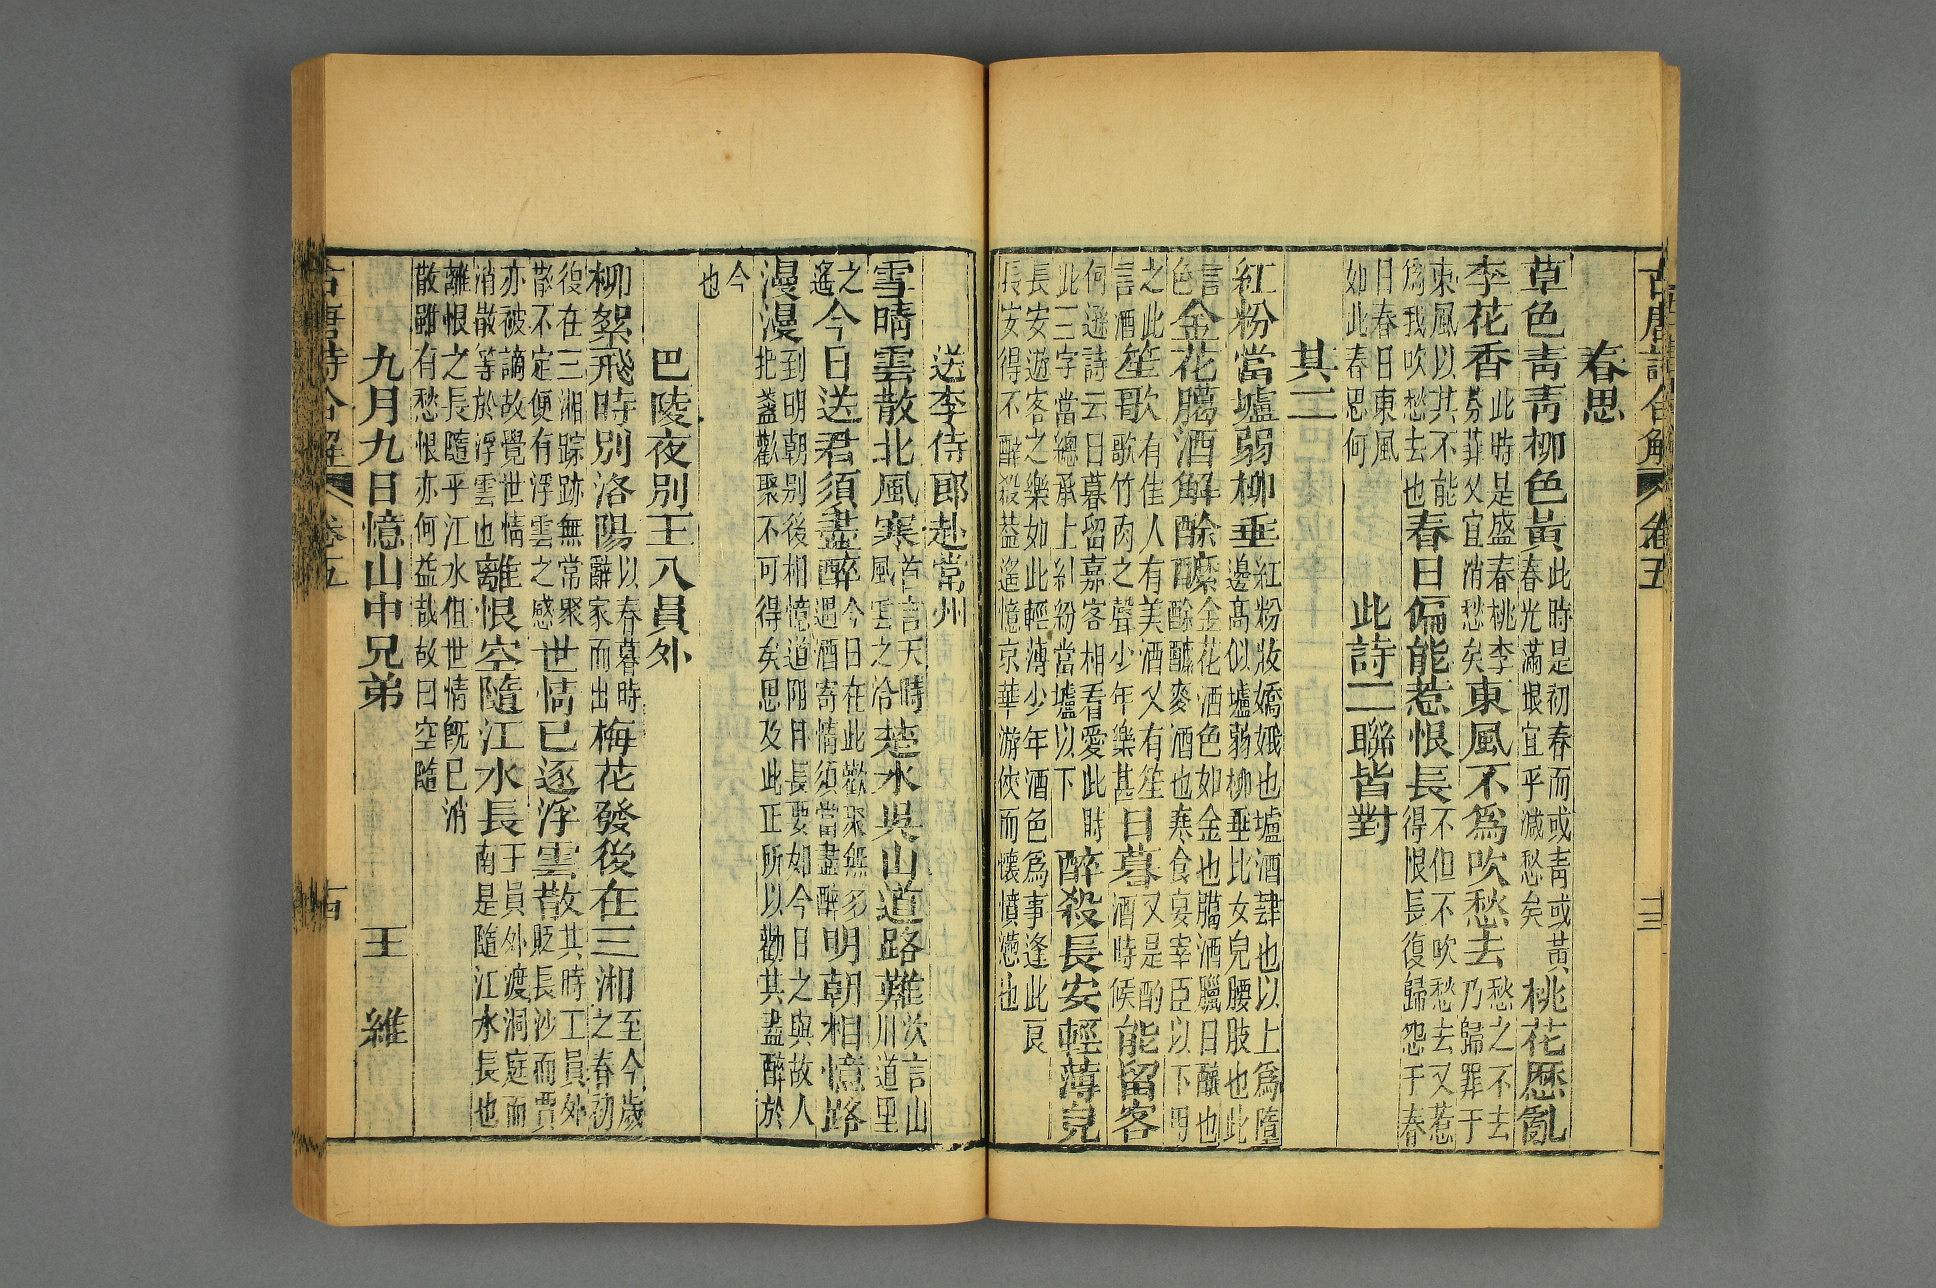 古唐詩合解 卷五
春思
草色青青柳色黃此時是初春而或青或黃春光滿垠宜乎減愁矣桃花歷亂
李花香此時是盛春桃李芬菲又宜消愁矣東風不為吹愁去愁之不去乃歸罪于
東風以其不能為我吹愁去也春日偏能惹恨長不但不吹愁去又惹得恨長復歸怨于春
日春日東風如此春思何 此詩二聯皆對
其二
紅粉當壚弱柳垂紅粉妝嬌娥也壚酒肆也以上為壚邊高似壚弱柳垂比女兒腰肢也此
言色金花臈酒解酴醾金花酒色如金也臈酒臘日釀也酴醾麥酒也寒食宴宰臣以下用
之此言酒笙歌有佳人有美酒又有笙歌竹肉之聲少年樂甚日暮又是酌酒時候能留客
何遜詩云日暮留嘉客相看愛此時此三字當總承上紅紛當壚以下醉殺長安輕薄兒
長安遊客之樂如此輕薄少年酒色為事逢此良辰安得不醉殺葢遙憶京華游俠而懷憤懣也
送李侍郎赴常州
雪晴雲散北風寒首言天時風雲之冷楚水吳山道路難次言山川道里
之遙今日送君須盡醉今日在此歡聚無多遇酒寄情須當盡醉明朝相憶路
漫漫到明朝別後相憶道阻且長要如今日之與故人把盞歡聚不可得矣思及此正所以勸其盡醉於
今也
巴陵夜別王八員外
柳絮飛時別洛陽以春暮時辭家而出梅花發後在三湘至今歲之春初
後在三湘踪跡無常聚散不定便有浮雲之感世情已逐浮雲散其時王員外貶長沙而賈
亦被謫故覺世情消散等於浮雲也離恨空隨江水長王員外渡洞庭而南是隨江水長也
離恨之長隨乎江水但世情既已消散雖有愁恨亦何益哉故曰空隨
九月九日憶山中兄弟 王維
古唐詩合解 卷五